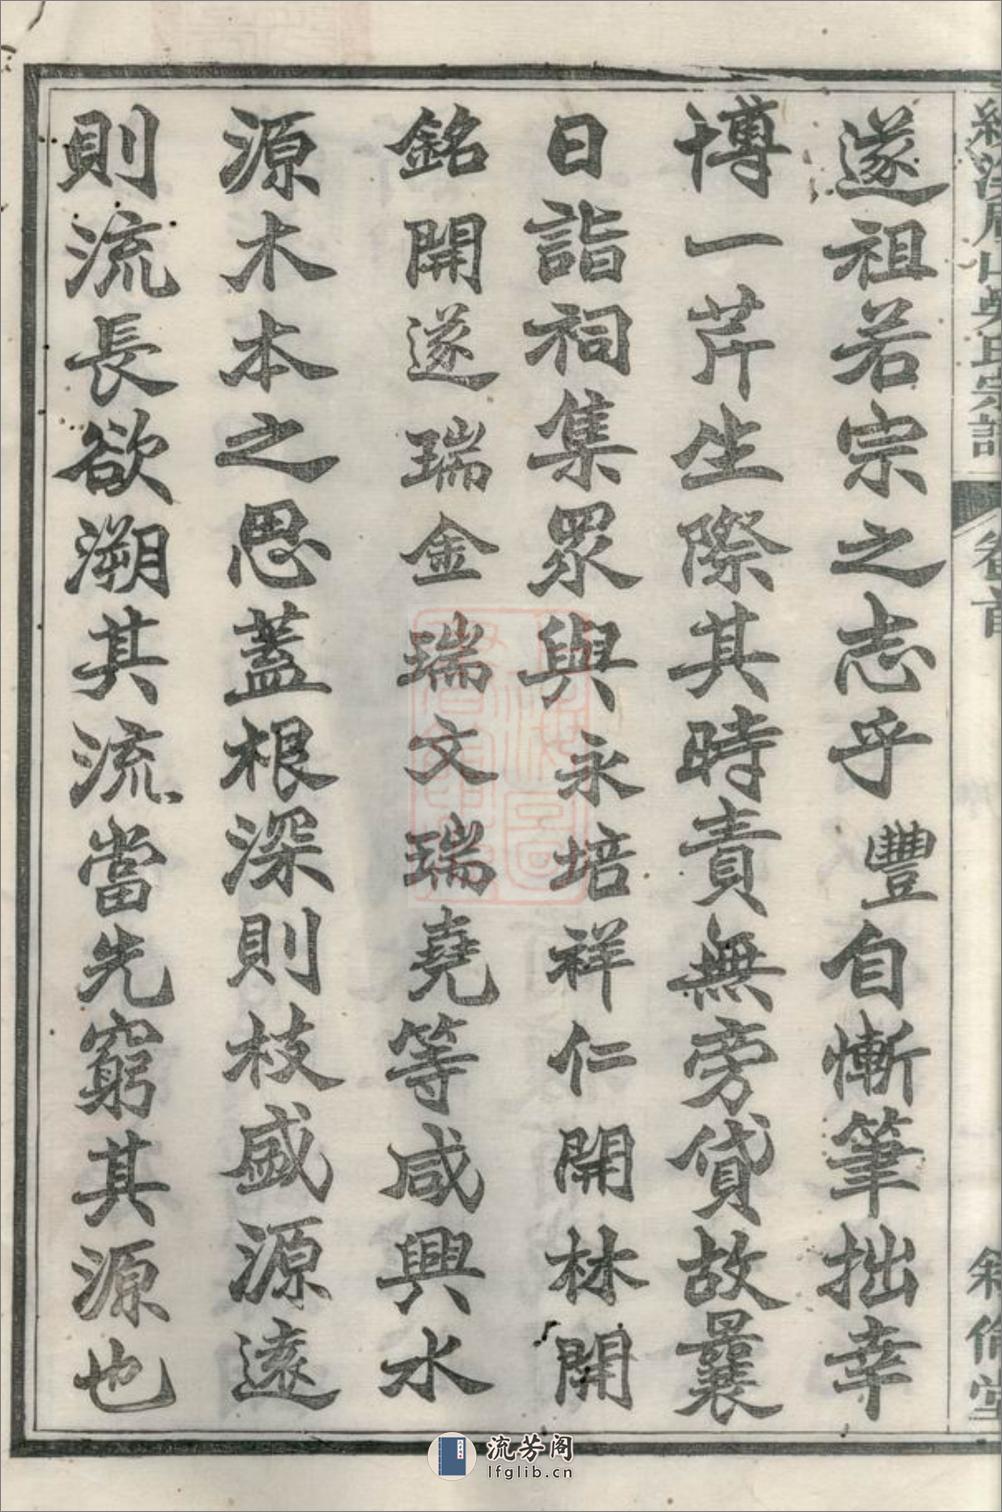 遂祖若宗之志乎豐自慚筆拙幸
博一芹生際其時責無旁貸故曩
日詣祠集眾與永培祥仁開林開
銘開遂瑞金瑞文瑞堯等咸興水
源木本之思蓋根深則枝盛源遠
則流長欲溯其流當先窮其源也
氏宗譜
卷首
敘倫堂
流芳阁
lfglib.cn